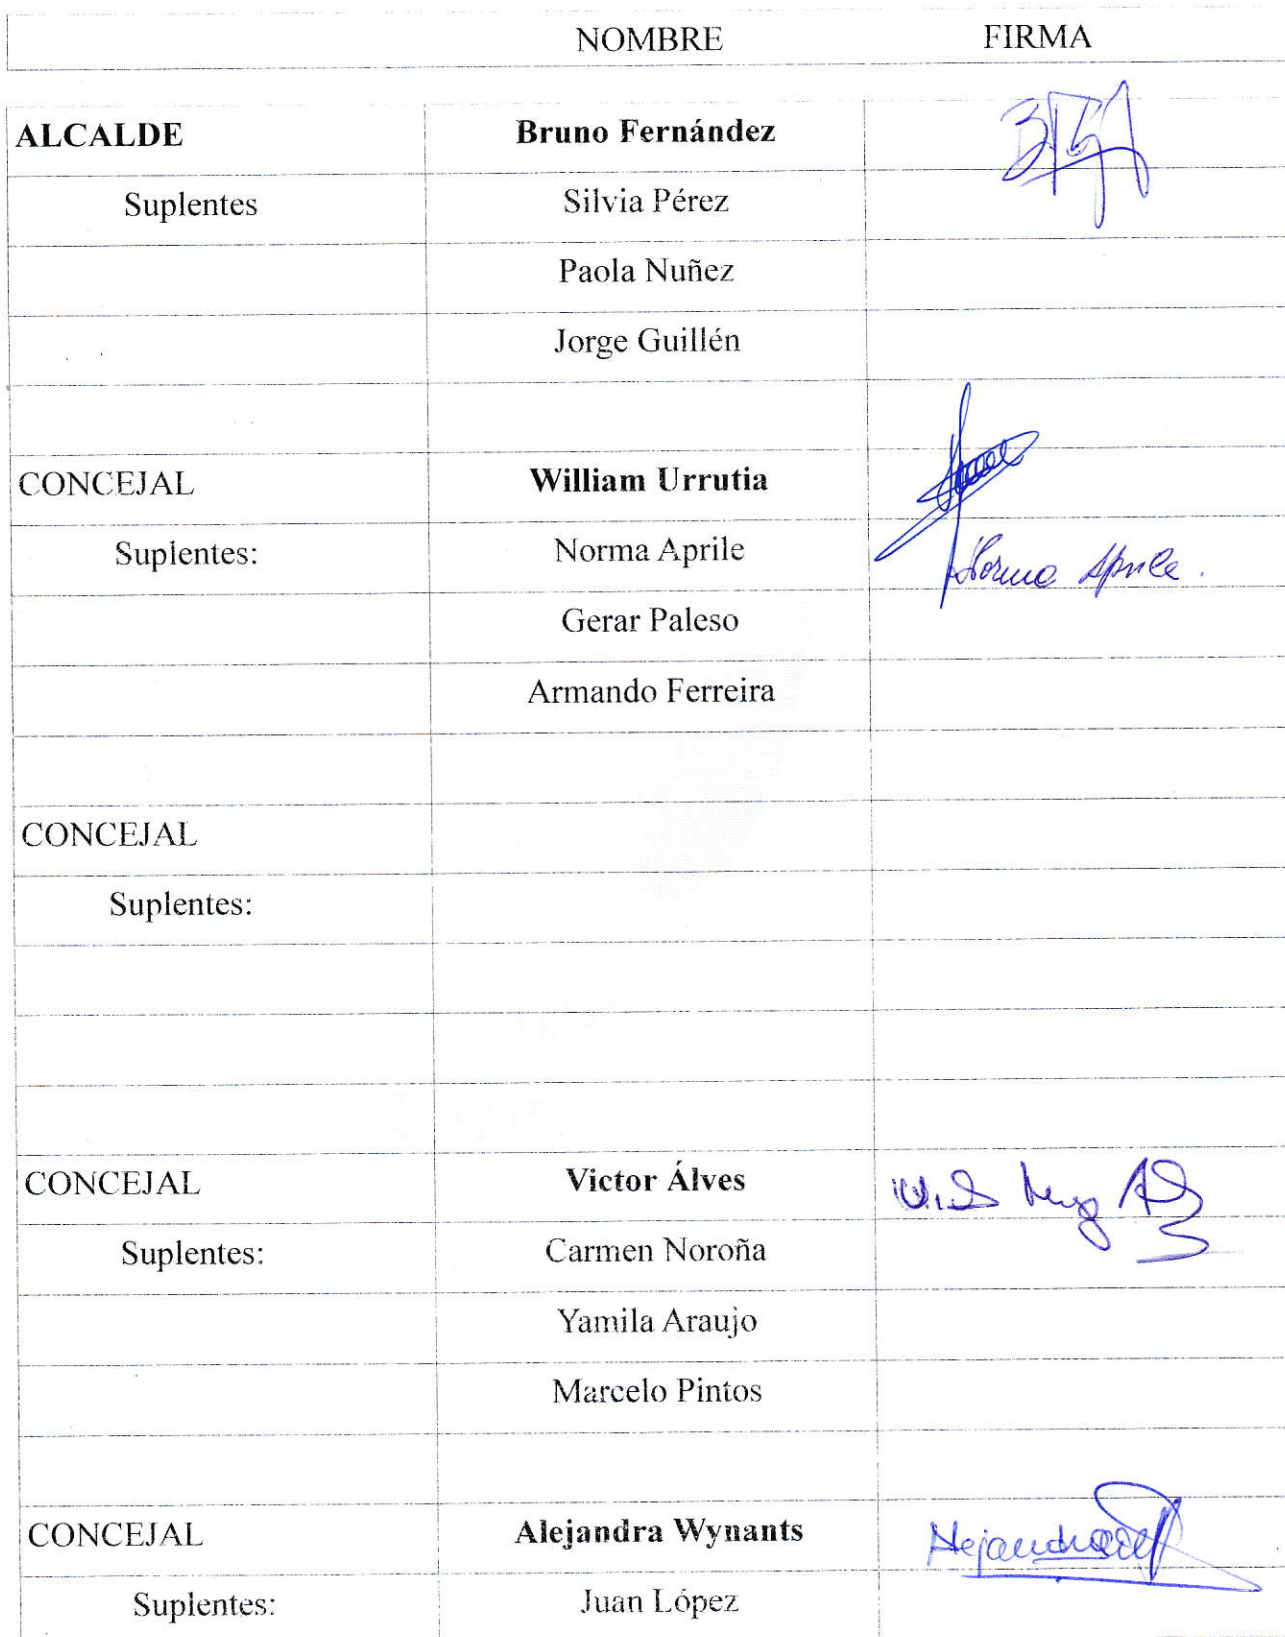 NOMBRE FIRMA
ALCALDE Bruno Fernández
Suplentes Silvia Pérez
Paola Nuñez
Jorge Guillén
CONCEJAL William Urrutia
Suplentes: Norma Aprile Norma Aprile.
Gerar Paleso
Armando Ferreira
CONCEJAL
Suplentes:
CONCEJAL Victor Álves
Suplentes: Carmen Noroña
Yamila Araujo
Marcelo Pintos
CONCEJAL Alejandra Wynants Alejandra
Suplentes: Juan López